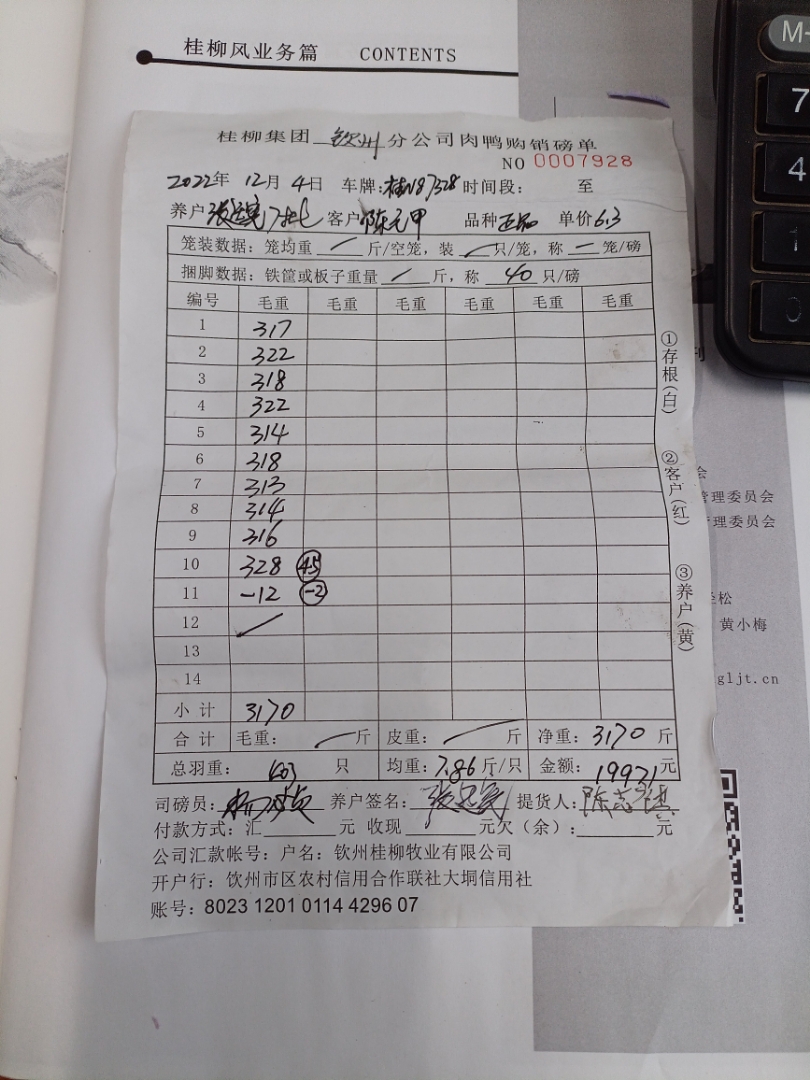 桂柳风业务篇 CONTENTS
桂柳集团 钦州 分公司肉鸭购销磅单
NO 0007928
2022年 12月 4日 车牌:桂N87328 时间段: 至
养户 客户 陈元甲 品种 正品 单价 6.3
笼装数据:笼均重 / 斤/空笼,装 / 只/笼,称 一 笼/磅
捆脚数据:铁筐或板子重量 / 斤,称 40 只/磅
编号 毛重 毛重 毛重 毛重 毛重 毛重
1 317
2 322
3 318
4 322
5 314
6 318
7 313
8 314
9 316
10 328 45
11 -12 -2
12 /
13
14
小计 3170
合计 毛重: / 斤 皮重: / 斤 净重: 3170 斤
总羽重: 403 只 均重: 7.86 斤/只 金额: 19971元
司磅员: 养户签名: 提货人:
付款方式:汇 元 收现 元欠(余): 元
公司汇款帐号:户名:钦州桂柳牧业有限公司
开户行:钦州市区农村信用合作联社大垌信用社
账号:8023 1201 0114 4296 07
①存根(白)
②客户(红)
③养户(黄)
M-
7
4
1
0
刊
会
管理委员会
管理委员会
轻松
黄小梅
gljt.cn